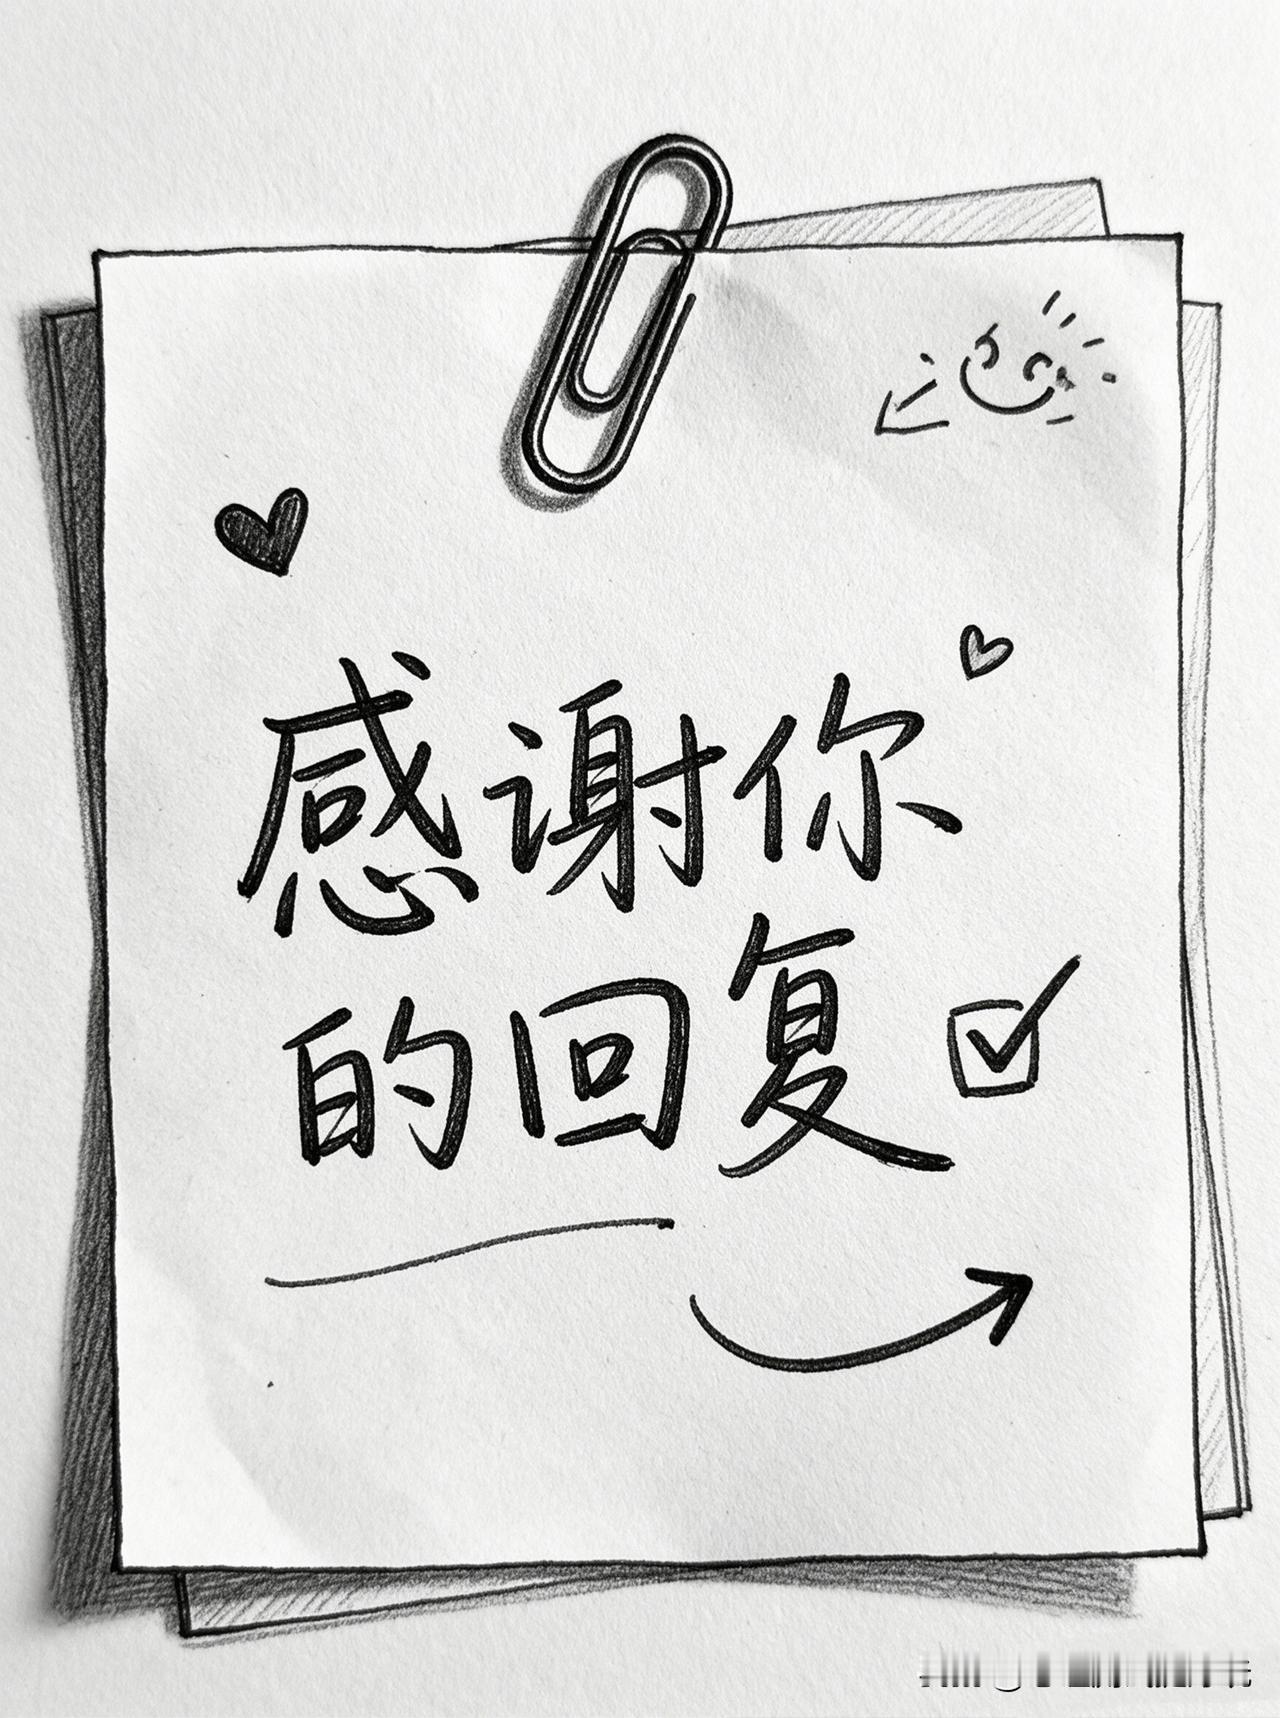 感谢你
的回复